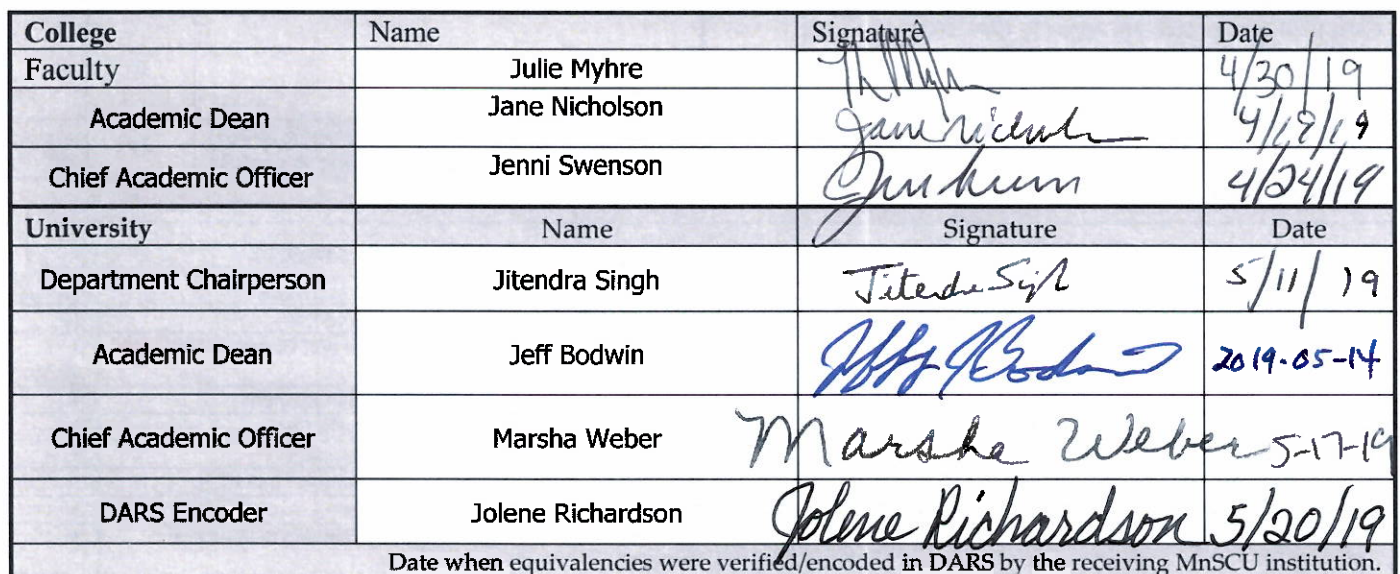 College Name Signature Date
Faculty Julie Myhre 4/30/19
Academic Dean Jane Nicholson Jane Nichols
Chief Academic Officer Jenni Swenson 4/24/19
University Name Signature Date
Department Chairperson Jitendra Singh 5/11/19
Academic Dean Jeff Bodwin 2019-05-14
Chief Academic Officer Marsha Weber Marsha Weber 5-17-19
DARS Encoder Jolene Richardson Jolene Richardson 5/20/19
Date when equivalencies were verified/encoded in DARS by the receiving MnSCU institution.